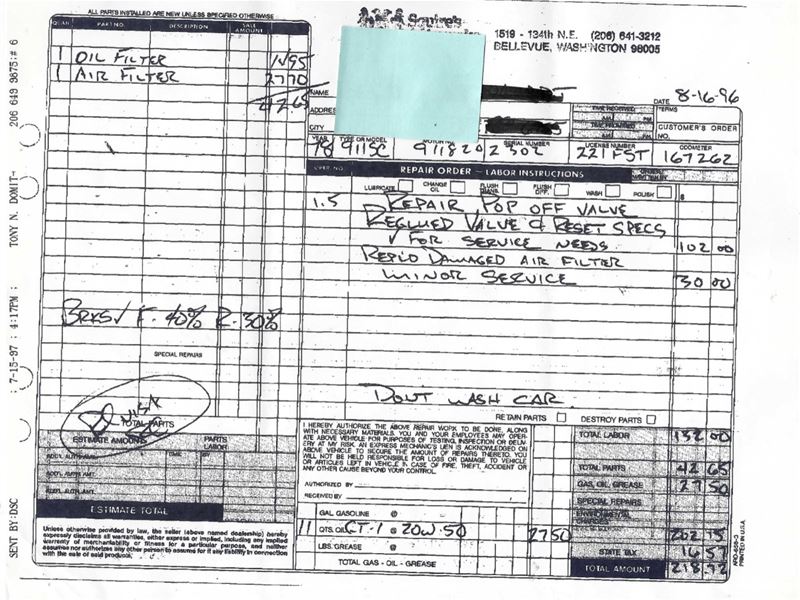 ALL PARTS INSTALLED ARE NEW UNLESS SPECIFIED OTHERWISE
QUAN. PART NO. DESCRIPTION SALE AMOUNT
1 OIL FILTER 1495
1 AIR FILTER 2770
4265
1519 - 134th N.E. (206) 641-3212
BELLEVUE, WASHINGTON 98005
NAME
DATE 8-16-96
ADDRESS
CITY
TIME RECEIVED AM PM
TIME PROMISED AM PM
TERMS
CUSTOMER'S ORDER NO.
YEAR TYPE OR MODEL MOTOR NO. SERIAL NUMBER LICENSE NUMBER ODOMETER
78 911SC 9118202302 221FST 167262
OPER. NO. REPAIR ORDER - LABOR INSTRUCTIONS
LUBRICATE CHANGE OIL FLUSH TRANS. FLUSH DIFF. WASH POLISH $
1.5 REPAIR POP OFF VALVE
REGLUED VALVE & RESET SPECS
✓ FOR SERVICE NEEDS 102 00
REPLD DAMAGED AIR FILTER
MINOR SERVICE 30 00
BRKS ✓ F. 40% R. 30%
SPECIAL REPAIRS
DON'T WASH CAR
VISA
TOTAL PARTS
ESTIMATE AMOUNTS PARTS LABOR
ADD'L AUTH. AMT. TIME BY
ADD'L AUTH. AMT.
ADD'L AUTH. AMT.
ESTIMATE TOTAL
Unless otherwise provided by law, the seller (above named dealership) hereby
expressly disclaims all warranties, either express or implied, including any implied
warranty of merchantability or fitness for a particular purpose, and neither
assumes nor authorizes any other person to assume for it any liability in connection
with the sale of said products.
RETAIN PARTS DESTROY PARTS
I HEREBY AUTHORIZE THE ABOVE REPAIR WORK TO BE DONE, ALONG
WITH NECESSARY MATERIALS. YOU AND YOUR EMPLOYEES MAY OPER-
ATE ABOVE VEHICLE FOR PURPOSES OF TESTING, INSPECTION OR DELIV-
ERY AT MY RISK. AN EXPRESS MECHANIC'S LIEN IS ACKNOWLEDGED ON
ABOVE VEHICLE TO SECURE THE AMOUNT OF REPAIRS THERETO. YOU
WILL NOT BE HELD RESPONSIBLE FOR LOSS OR DAMAGE TO VEHICLE
OR ARTICLES LEFT IN VEHICLE IN CASE OF FIRE, THEFT, ACCIDENT OR
ANY OTHER CAUSE BEYOND YOUR CONTROL.
AUTHORIZED BY
RECEIVED BY
GAL. GASOLINE @
11 QTS. OIL CT-1 @ 20W-50 2750
LBS. GREASE @
TOTAL GAS - OIL - GREASE
TOTAL LABOR 132 00
TOTAL PARTS 42 65
GAS, OIL, GREASE 27 50
SPECIAL REPAIRS
ENVIRONMENTAL CHARGES
202 15
STATE TAX 16 57
TOTAL AMOUNT 218.72
PRINTED IN U.S.A.
SENT BY:DSC ; 7-15-97 ; 4:17PM ; TONY N. DOMIT- 206 649 9875:# 6